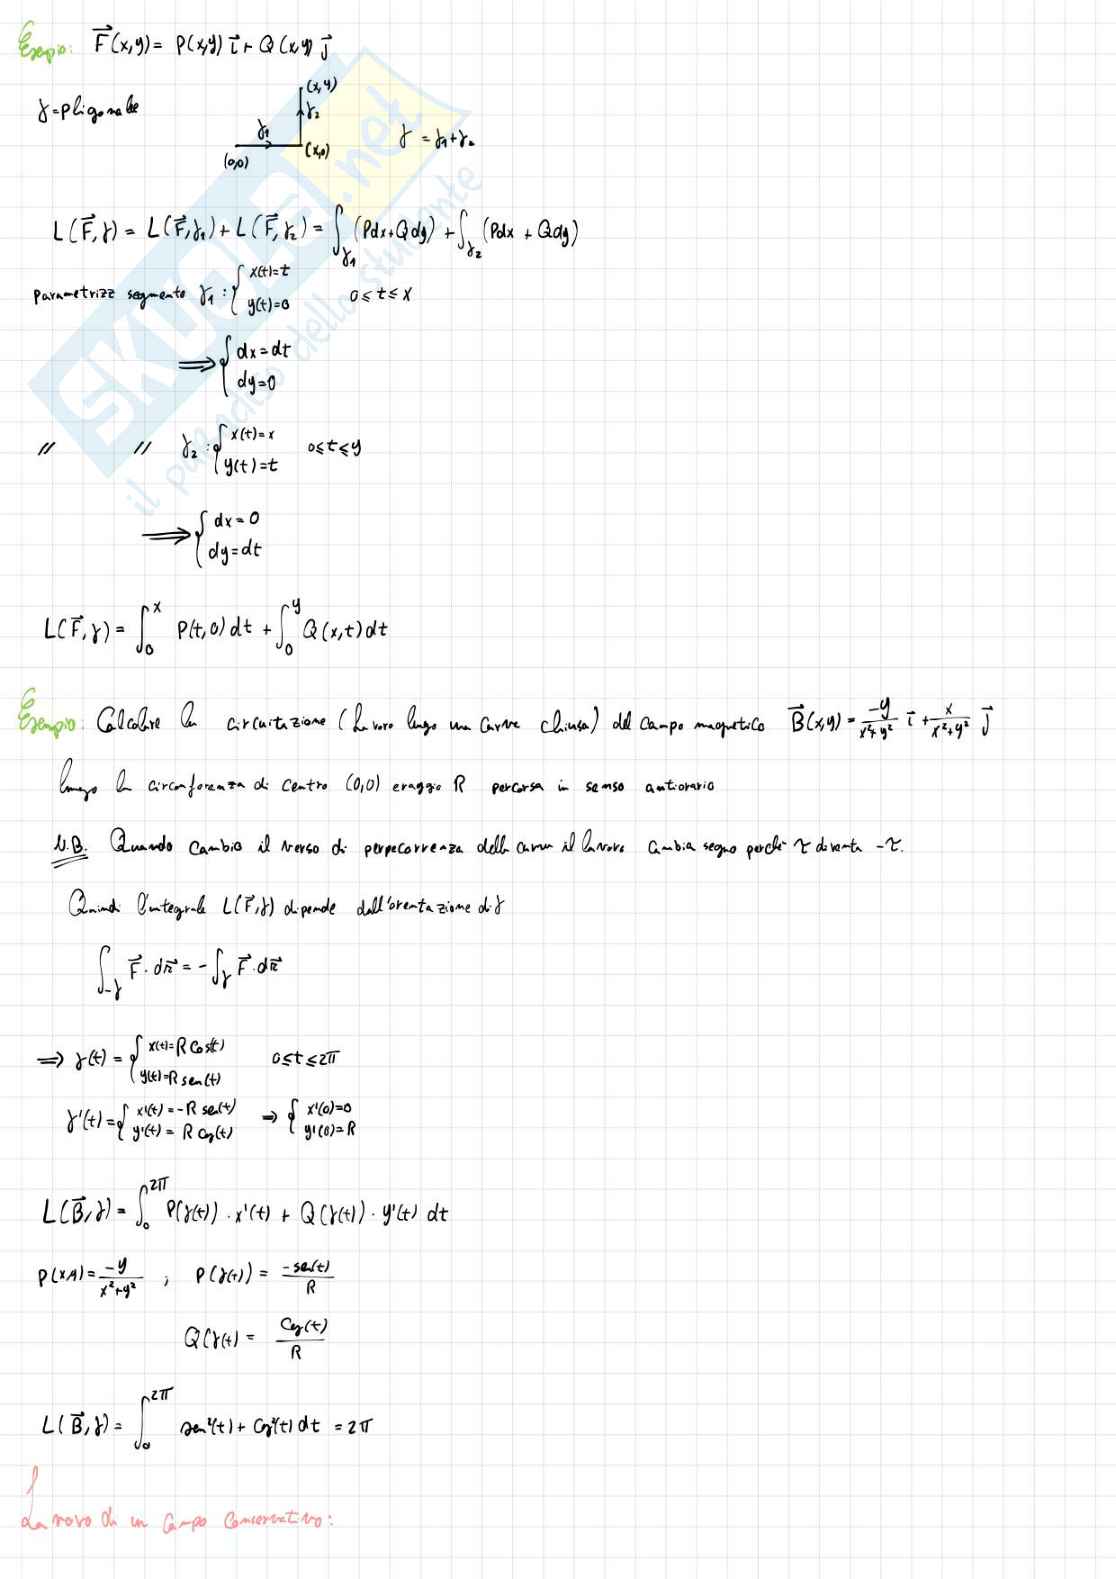 Esempio: F⃗(x,y)= P(x,y) i⃗ + Q(x,y) j⃗
γ=poligonale
(x,y)
γ₂
γ₁
(x,0)
(0,0)
γ = γ₁+γ₂
L(F⃗,γ) = L(F⃗,γ₁)+L(F⃗,γ₂) = ∫_γ₁ (Pdx+Qdy) + ∫_γ₂ (Pdx + Qdy)
parametrizz segmento γ₁ : { x(t)=t
y(t)=0 0≤t≤x
⟹ { dx=dt
dy=0
// // γ₂ : { x(t)=x
y(t)=t 0≤t≤y
⟹ { dx=0
dy=dt
L(F⃗,γ) = ∫₀ˣ P(t,0)dt + ∫₀ʸ Q(x,t)dt
Esempio: Calcolare la circuitazione (lavoro lungo una curva chiusa) del campo magnetico B⃗(x,y) = -y/(x²+y²) i⃗ + x/(x²+y²) j⃗
lungo la circonferenza di centro (0,0) e raggio R percorsa in senso antiorario
N.B. Quando cambio il verso di perpecorrenza della curva il lavoro cambia segno perché τ diventa -τ.
Quindi l'integrale L(F⃗,γ) dipende dall'orentazione di γ
∫_-γ F⃗·dr⃗ = -∫_γ F⃗·dr⃗
⟹ γ(t) = { x(t)=R Cos(t)
y(t)=R sen(t) 0≤t≤2π
γ'(t) = { x'(t)=-R sen(t)
y'(t)= R Cos(t) ⟹ { x'(0)=0
y'(0)=R
L(B⃗,γ) = ∫₀^2π P(γ(t))·x'(t) + Q(γ(t))·y'(t) dt
P(x,y) = -y/(x²+y²) ; P(γ(t)) = -sen(t)/R
Q(γ(t) = Cos(t)/R
L(B⃗,γ) = ∫₀^2π sen²(t)+Cos²(t)dt = 2π
Lavoro di un campo Conservativo:
SKUOLA.net
il paradiso dello studente